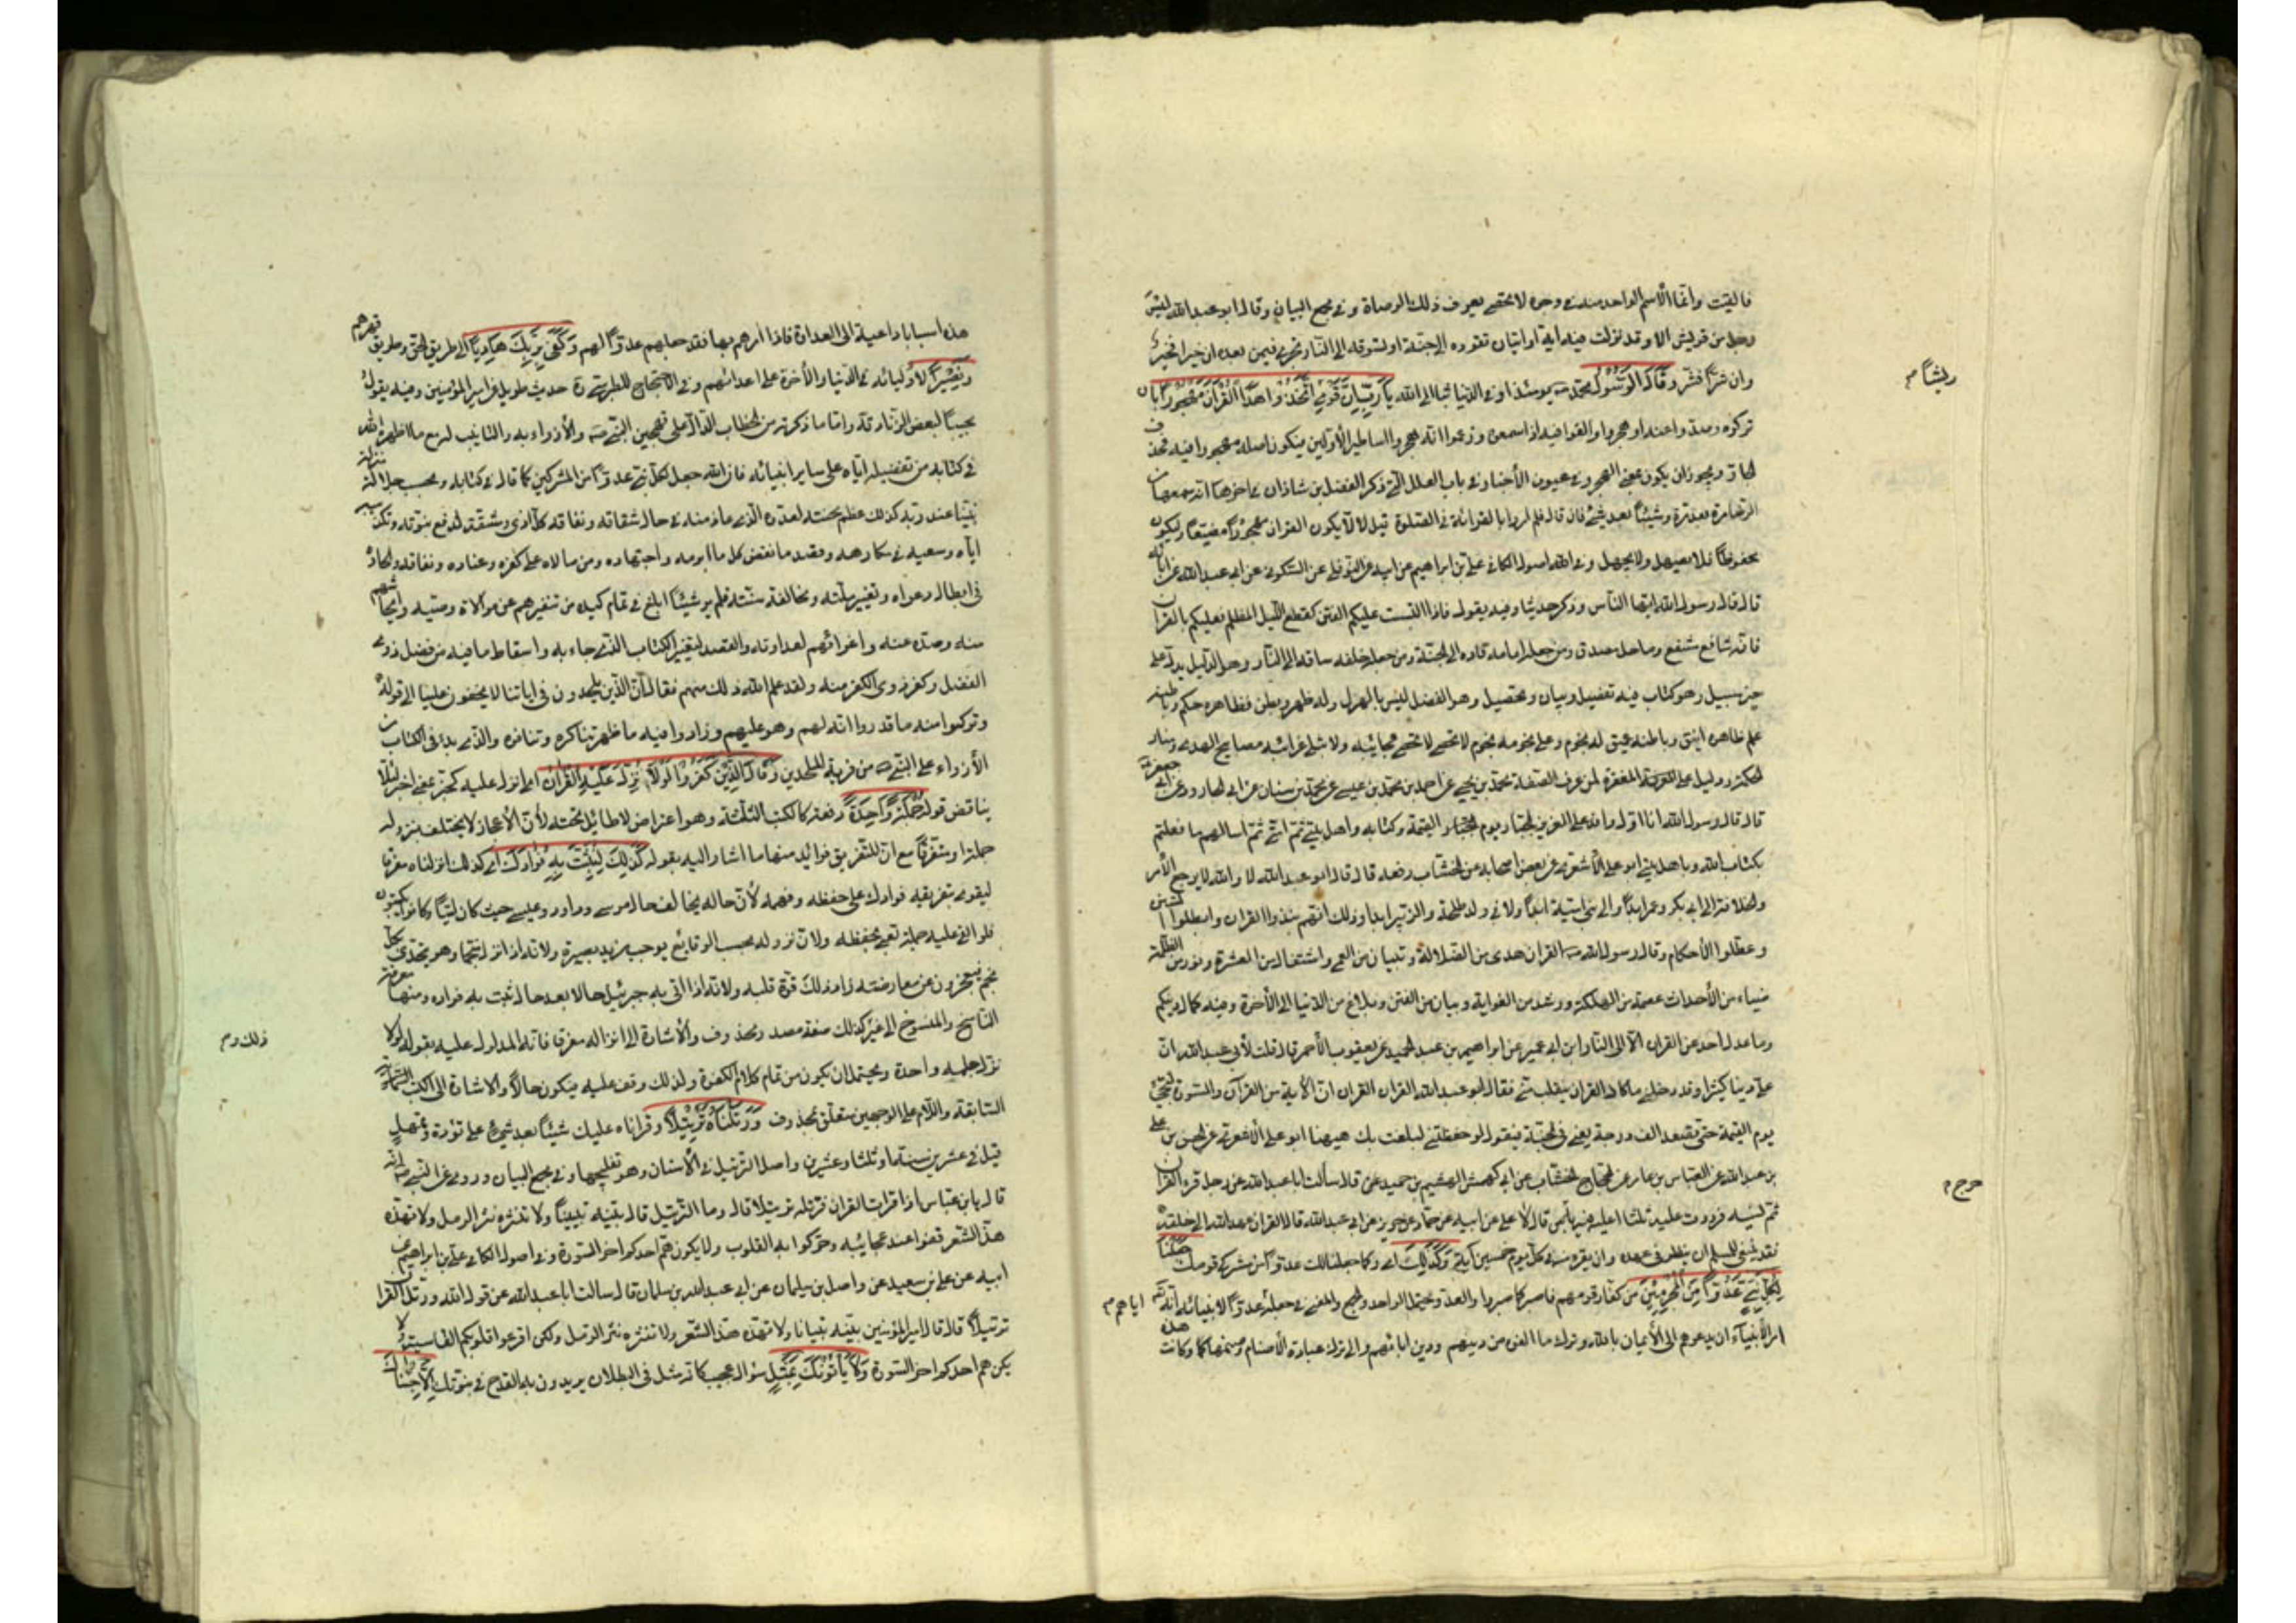 فالقيت وانما الاسم الواحد منه في وجوه لا تحصى يعرف ذلك الوصاة وفي مجمع البيان وقال ابو عبد الله ليس
رجل من قريش الا وقد نزلت فيه اية او ايتان تقوده الى جنة او تسوقه الى النار تجري فيمن بعده ان خيرا فخيرا
وان شرا فشر وَقَالَ الرَّسُولُ محمد يومئذ او في الدنيا بثا الى الله يَا رَبِّ اِنَّ قَوْمِي اتَّخَذُوا هٰذَا الْقُرْآنَ مَهْجُورًا بان
تركوه وصدوا عنه او هجروا والغوا فيه اذا سمعوه وزعموا انه هجر واساطير الاولين فيكون اصله مهجورا فيه فحذف
الجار ويجوز ان يكون بمعنى الهجر وفي عيون الأخبار في باب العلل التي ذكر الفضل بن شاذان في اخرها انه سمعها من
الرضا مرة بعد مرة وشيئا بعد شيء فان قال فلم امروا بالقرائة في الصلوة قيل لالا يكون القران مهجورا مضيعا وليكون
محفوظا فلا يضمحل ولا يجهل وفي اصول الكافي علي بن ابراهيم عن ابيه عن النوفلي عن السكوني عن ابي عبد الله عن ابائه
قال قال رسول الله ايها الناس وذكر حديثا وفيه يقول فاذا التبست عليكم الفتن كقطع الليل المظلم فعليكم بالقران
فانه شافع مشفع وماحل مصدق ومن جعله امامه قاده الى الجنة ومن جعله خلفه ساقه الى النار وهو الدليل يدل على
خير سبيل وهو كتاب فيه تفصيل وبيان وتحصيل وهو الفصل ليس بالهزل وله ظهر وبطن فظاهره حكم وباطنه
علم ظاهره انيق وباطنه عميق له نجوم وعلى نجومه نجوم لا تحصى عجائبه ولا تبلى غرائبه مصابيح الهدى ومنار
الحكمة ودليل على المعرفة لمن عرف الصفة محمد بن يحيى عن احمد بن محمد بن عيسى عن محمد بن سنان عن ابي الجارود عن ابي جعفر
قال قال رسول الله انا اول وافد على العزيز الجبار يوم القيمة وكتابه واهل بيتي ثم امتي ثم اسالهم ما فعلتم
بكتاب الله وباهل بيتي ابو علي الأشعري عن بعض اصحابه عن الخشاب رفعه قال قال ابو عبد الله لا والله لا يرجع الأمر
والخلافة الى ابي بكر وعمر ابدا ولا الى بني امية ابدا ولا في ولد طلحة والزبير ابدا وذلك انهم نبذوا القران وابطلوا السنن
وعطلوا الأحكام وقال رسول الله القران هدى من الضلالة وتبيان من العمى واستقالة من العثرة ونور من الظلمة
ضياء من الأحداث عصمة من الهلكة ورشد من الغواية وبيان من الفتن وبلاغ من الدنيا الى الأخرة وفيه كمال دينكم
وما عدل احد عن القران الا الى النار ابن ابي عمير عن ابراهيم بن عبد الحميد عن يعقوب الأحمر قال قلت لأبي عبد الله ان
علي دينا كثيرا وقد دخلني ما كاد القران يتفلت مني فقال ابو عبد الله القران القران ان الأية من القرآن والسورة لتجيء
يوم القيمة حتى تصعد الف درجة يعني في الجنة فتقول لو حفظتني لبلغت بك هيهنا ابو علي الأشعري عن الحسن بن علي
بن عبد الله عن العباس بن عامر عن الحجاج الخشاب عن ابي كهمس الهيثم بن عبيد قال سألت ابا عبد الله عن رجل قرء القران
ثم نسيه فرددت عليه ثلثا اعليه فيه حرج قال لا علي عن ابيه عن حماد عن حريز عن ابي عبد الله قال القران عهد الله الى خلقه
فقد ينبغي للمسلم ان ينظر في عهده وان يقرء منه في كل يوم خمسين آية وَكَذٰلِكَ اي وكما جعلنا لك عدوا من مشركي قومك جَعَلْنَا
لِكُلِّ نَبِيٍّ عَدُوًّا مِنَ الْمُجْرِمِينَ من كفار قومهم فاصبر كما صبروا والعدو يحتمل الواحد والجمع والمعنى في جعله عدوا لانبيائه انه تعالى
امر الأنبياء ان يدعوهم الى الأيمان بالله وترك ما الفوه من دينهم ودين ابائهم والى ترك عبادة الأصنام وذمها وكانت هذه
وليشا م
حرج م
اياهم م
هذه اسبابا داعية الى العداوة فاذا امرهم بها فقد جعلهم عدوا لهم وَكَفٰى بِرَبِّكَ هَادِيًا الى طريق الحق وطريق قهرهم
وَنَصِيرًا لأوليائه في الدنيا والأخرة على اعدائهم وفي الأحتجاج للطبرسي ره حديث طويل عن امير المؤمنين وفيه يقول
مجيبا لبعض الزنادقة واما ما ذكرته من الخطاب الدال على تهجين النبي والأزراء به والتانيب له مع ما اظهره الله
في كتابه من تفضيله اياه على ساير انبيائه فان الله جعل لكل نبي عدوا من المشركين كما قال في كتابه وبحسب جلالة منزلة
نبينا عند ربه كذلك عظم محنته لعدوه الذي عاد منه في حال شقاقه ونفاقه كل اذى ومشقة لدفع نبوته وتكذيبه
اياه وسعيه في مكارهه وقصده لنقض كل ما ابرمه واجتهاده ومن مالاه على كفره وعناده ونفاقه والحاده
في ابطال دعواه وتغيير ملته ومخالفة سنته فلم ير شيئا ابلغ في تمام كيده من تنفيرهم عن موالاة وصيه وايحاشهم
منه وصدهم عنه واغرائهم لعداوته والقصد لتغيير الكتاب الذي جاء به واسقاط ما فيه من فضل ذوي
الفضل وكفر ذوي الكفر منه ولقد علم الله ذلك منهم فقال ان الذين يلحدون في اياتنا لا يخفون علينا الى قوله
وتركوا منه ما قدروا انه لهم وهو عليهم وزادوا فيه ما ظهر تناكره وتنافره والذي بدء في الكتاب من
الأزراء على النبي من فرية الملحدين وَقَالَ الَّذِينَ كَفَرُوا لَوْلَا نُزِّلَ عَلَيْهِ الْقُرْآنُ اي انزل عليه كخبر بمعنى اخبر لئلا
يناقض قوله جُمْلَةً وَاحِدَةً دفعة كالكتب الثلثة وهو اعتراض لا طائل تحته لأن الأعجاز لا يختلف بنزوله
جملة او متفرقا مع ان للتفريق فوائد منها ما اشار اليه بقوله كَذٰلِكَ لِنُثَبِّتَ بِهِ فُؤَادَكَ اي كذلك انزلناه مفرقا
ليقوى بتفريقه فؤادك على حفظه وفهمه لأن حاله يخالف حال موسى وداود وعيسى حيث كان اميا وكانوا يكتبون
فلو القي عليه جملة لعي بحفظه ولان نزوله بحسب الوقايع يوجب مزيد بصيرة ولانه اذا نزل منجما وهو يتحدى بكل
نجم فيعجزون عن معارضته زاد ذلك قوة قلبه ولانه اذا اتى به جبرئيل حالا بعد حال ثبت به فؤاده ومنها معرفة
الناسخ والمنسوخ الى غير كذلك صفة مصدر محذوف والأشارة الى انزاله مفرقا فانه المدلول عليه بقوله لولا
نزل جملة واحدة ويحتمل ان يكون من تمام كلام الكفرة ولذلك وقف عليه فيكون حالا والاشارة الى الكتب السماوية
السابقة واللام على الوجهين متعلق بمحذوف وَرَتَّلْنَاهُ تَرْتِيلًا وقراناه عليك شيئا بعد شيء على تؤدة وتمهل
قيل في عشرين سنة او ثلثا وعشرين واصل الترتيل في الأسنان وهو تفليجها وفي مجمع البيان وروي عن النبي انه
قال يابن عباس اذا قرات القران فرتله ترتيلا قال وما الترتيل قال بينه تبيينا ولا تنثره نثر الرمل ولا تهذه
هذ الشعر قفوا عند عجائبه وحركوا به القلوب ولا يكون هم احدكم اخر السورة وفي اصول الكافي علي بن ابراهيم عن
ابيه عن علي بن سعيد عن واصل بن سليمان عن ابي عبد الله بن سلمان قال سالت ابا عبد الله عن قول الله ورتل القران
ترتيلا قال قال امير المؤمنين بينه تبيانا ولا تهذه هذ الشعر ولا تنثره نثر الرمل ولكن اقرعوا قلوبكم القاسية ولا
يكن هم احدكم اخر السورة وَلَا يَأْتُونَكَ بِمَثَلٍ سؤال عجيب كانه مثل في البطلان يريدون به القدح في نبوتك اِلَّا جِئْنَاكَ
ذلك م